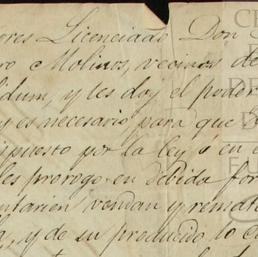 eres Licenciado Don
ro Molinos, vecinos de
lidum, y les doy el poder
y es necesario para que
ispuesto por la ley ó en
les prorogo en debida for
entarien vendan y remat
a, y de su producido lo